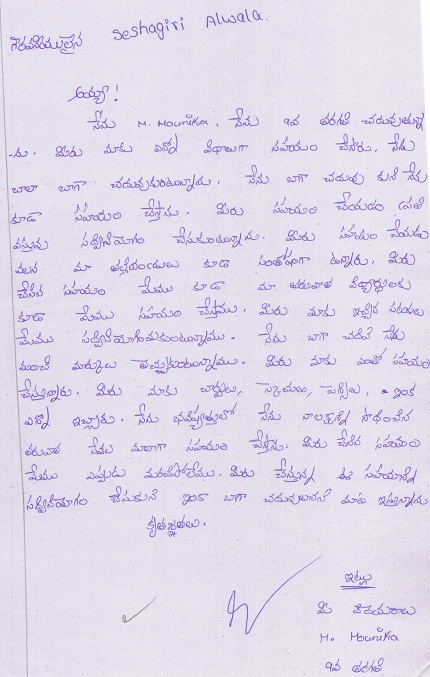 గౌరవనీయులైన Seshagiri Alwala.
అయ్యా !
నేను M. Mounika. నేను 9వ తరగతి చదువుతున్నా
-ను. మీరు మాకు ఎన్నో విధాలుగా సహయం చేసారు. నేను
చాలా బాగా చదువుకుంటున్నాను. నేను బాగా చదువు కుని నేను
కూడా సహాయం చేస్తాను. మీరు సహయం చేయడం ప్రతి
వస్తువు సద్వినియోగం చేసుకుంటున్నాను. మీరు సహయం చేయడం
వలన మా తల్లిదండ్రులు కూడా సంతోషంగా ఉన్నారు. మీరు
చేసిన సహయం మేము కూడా మా తరువాత విద్యార్థులకు
కూడా మేము సహయం చేస్తాము. మీరు మాకు ఇచ్చిన
మేము సద్వినియోగించుకుంటున్నాము. నేను బాగా చదివి నేను
మంచి మార్కులు తెచ్చుకుంటున్నాము. మీరు మాకు ఎంతో సహయం
చేస్తున్నారు. మీరు మాకు పెన్సిలు, ఇంకా
ఎన్నో ఇచ్చారు. నేను భవిష్యత్తులో నేను సాధించిన
తరువాత నేను మీలాగా సహయం చేస్తాను. మీరు చేసిన సహయం
మేము ఎప్పుడు మరచిపోలేము. మీరు చేస్తున్న ఈ సహాయాన్ని
సద్వినియోగం చేసుకుని ఇంకా బాగా మాకు ఇస్తున్నాను
కృతజ్ఞతలు.
ఇట్లు
మీ విధేయురాలు
M. Mounika
9వ తరగతి